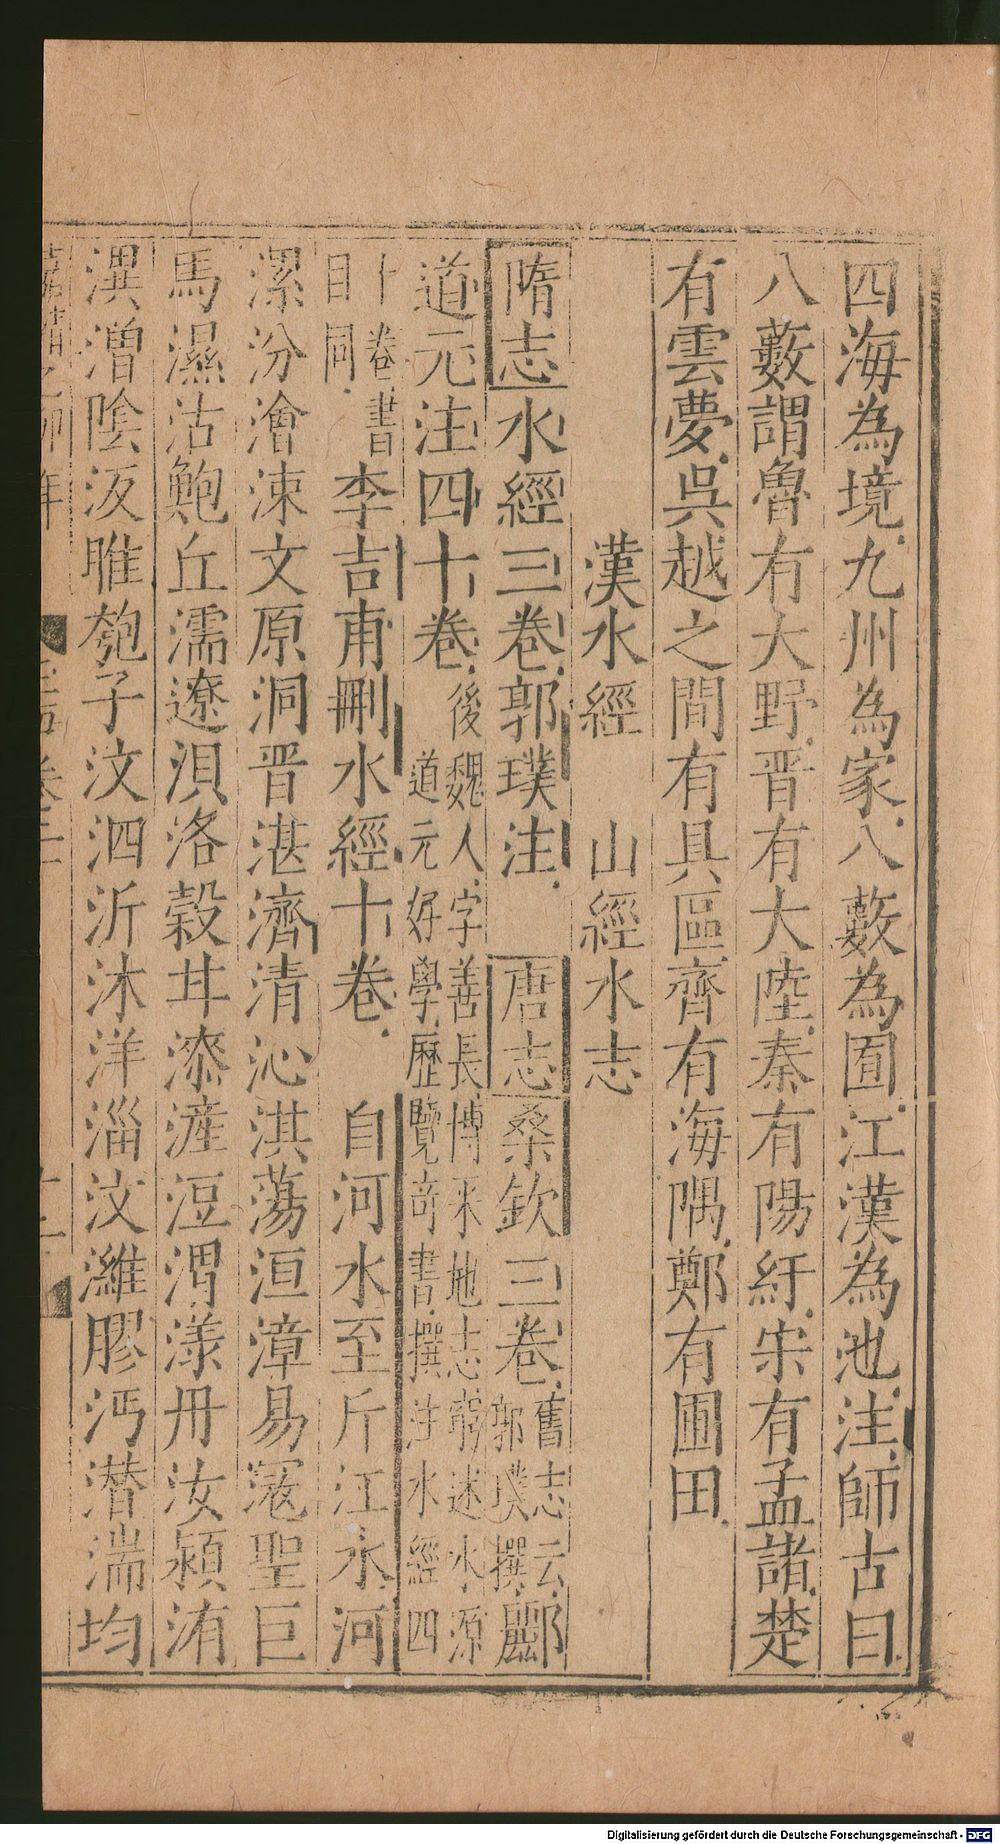 四海為境九州為家八藪為囿江漢為池注師古曰
八藪謂魯有大野晋有大陸秦有陽紆宋有孟諸楚
有雲夢吳越之間有具區齊有海隅鄭有圃田
漢水經 山經水志
隋志水經三卷郭璞注 唐志桑欽三卷舊志云郭璞撰酈
道元注四十卷後魏人字善長博采地志窮述水源道元好學歷覽奇書撰注水經四
十卷書目同李吉甫刪水經十卷 自河水至斤江水河
漯汾澮涑文原洞晋湛濟清沁淇蕩洹漳易滱聖巨
馬濕沽鮑丘濡遼浿洛穀甘漆滻沮渭漾丹汝潁洧
潩潧陰汳睢瓠子汶泗沂沭洋淄汶濰膠沔潜湍均
年
Digitalisierung gefördert durch die Deutsche Forschungsgemeinschaft - DFG